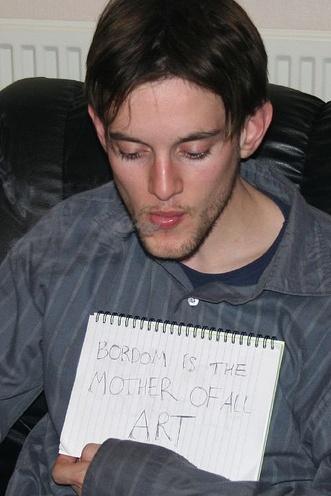 BORDOM IS THE
MOTHER OF ALL
ART